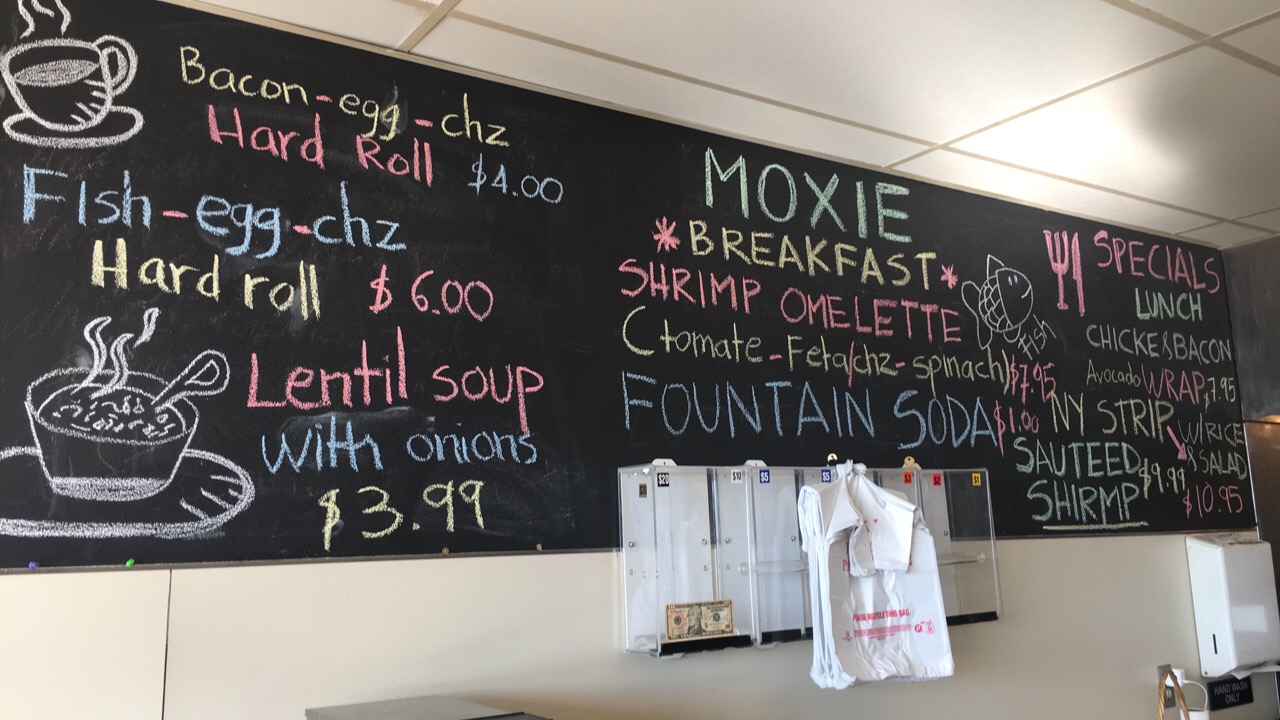 Bacon-egg-chz
Hard Roll $4.00
FIsh-egg-chz
Hard roll $6.00
Lentil soup
with onions
$3.99
MOXIE
*BREAKFAST*
SHRIMP OMELETTE
(tomate-Feta/chz-spinach) $7.95
FOUNTAIN SODA $1.00
Fish
SPECIALS
LUNCH
CHICKE&BACON
Avocado WRAP, 7.95
NY STRIP W/RICE
& SALAD
$10.95
SAUTEED $9.99
SHIRMP
$20
$10
$5
$5
$2
$1
PLEASE RECYCLE THIS BAG.
HAND WASH
ONLY